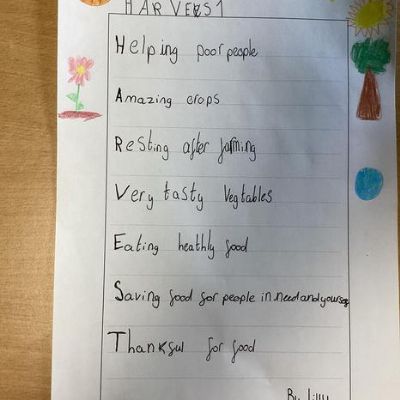 HARVEST
Helping poor people
Amazing crops
Resting after farming
Very tasty Vegtables
Eating heathly food
Saving food for people in need and yourself
Thanksul for food
By Lilly